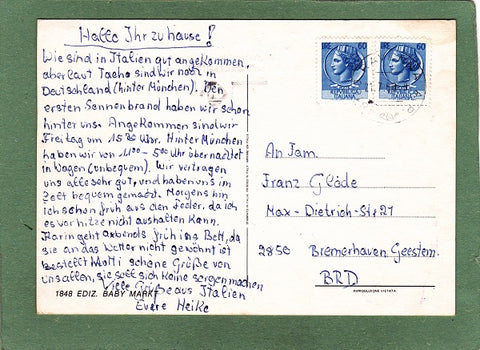 Hallo Ihr zuhause!
Wie sind in Italien gut angekommen,
aber laut Tacho sind wir noch in
Deutschland (hinter München). Den
ersten Sonnenbrand haben wir schon
hinter uns. Angekommen sind wir
Freitag um 15 Uhr. Hinter München
haben wir von 11°° - 5°° Uhr übernachtet
in Wagen (unbequem). Wir vertragen
uns alle sehr gut, und haben uns im
Zelt bequem gemacht. Morgens bin
ich schon früh aus den Feder, da ich
es vor hitze nicht aushalten kann.
Karin geht abends früh ins Bett, da
sie an das Wetter nicht gewöhnt ist
bestellt Mutti schöne Grüße von
uns allen, sie soll sich keine sorgen machen
Viele Grüße aus Italien
Euere Heike
1848 EDIZ. BABY MARKET
60
60
An Fam.
Franz Glöde
Max-Dietrich-Str 21
2850 Bremerhaven Geestem.
BRD